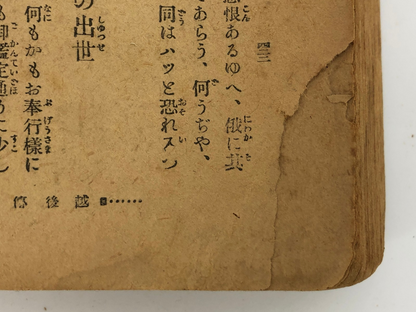 恨あるゆへ、俄に其
であらう、何うぢや、
同はハッと恐れ入つ
の出世
何もかもお奉行樣に
も御鑑定通りに少し
越後傳